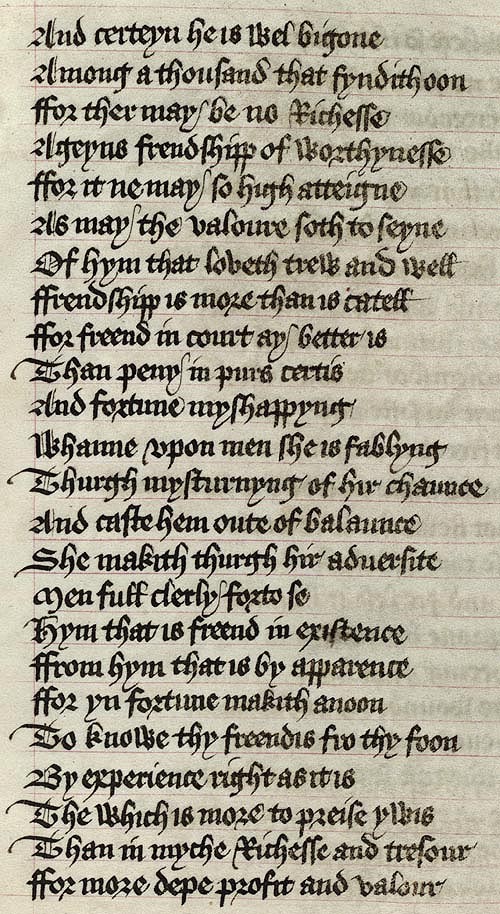 And certeyn he is wel bigone
Among a thousand that fyndith oon
ffor ther may be no Richesse
Ageyns frendshipp of worthynesse
ffor it ne may so high atteigne
As may the valoure soth to seyne
Of hym that loveth trew and well
ffrendshipp is more than is catell
ffor freend in court ay better is
Than peny in purs certis
And fortune myshappyng
Whanne vpon men she is fablyng
Thurgh mysturnyng of hir chaunce
And caste hem oute of balaunce
She makith thurgh hir aduersite
Men full clerly forto se
Hym that is freend in existence
ffrom hym that is by apparence
ffor yn fortune makith anoon
To knowe thy freendis fro thy foon
By experience right as it is
The which is more to preise ywis
Than in myche Richesse and tresour
ffor more depe profit and valour